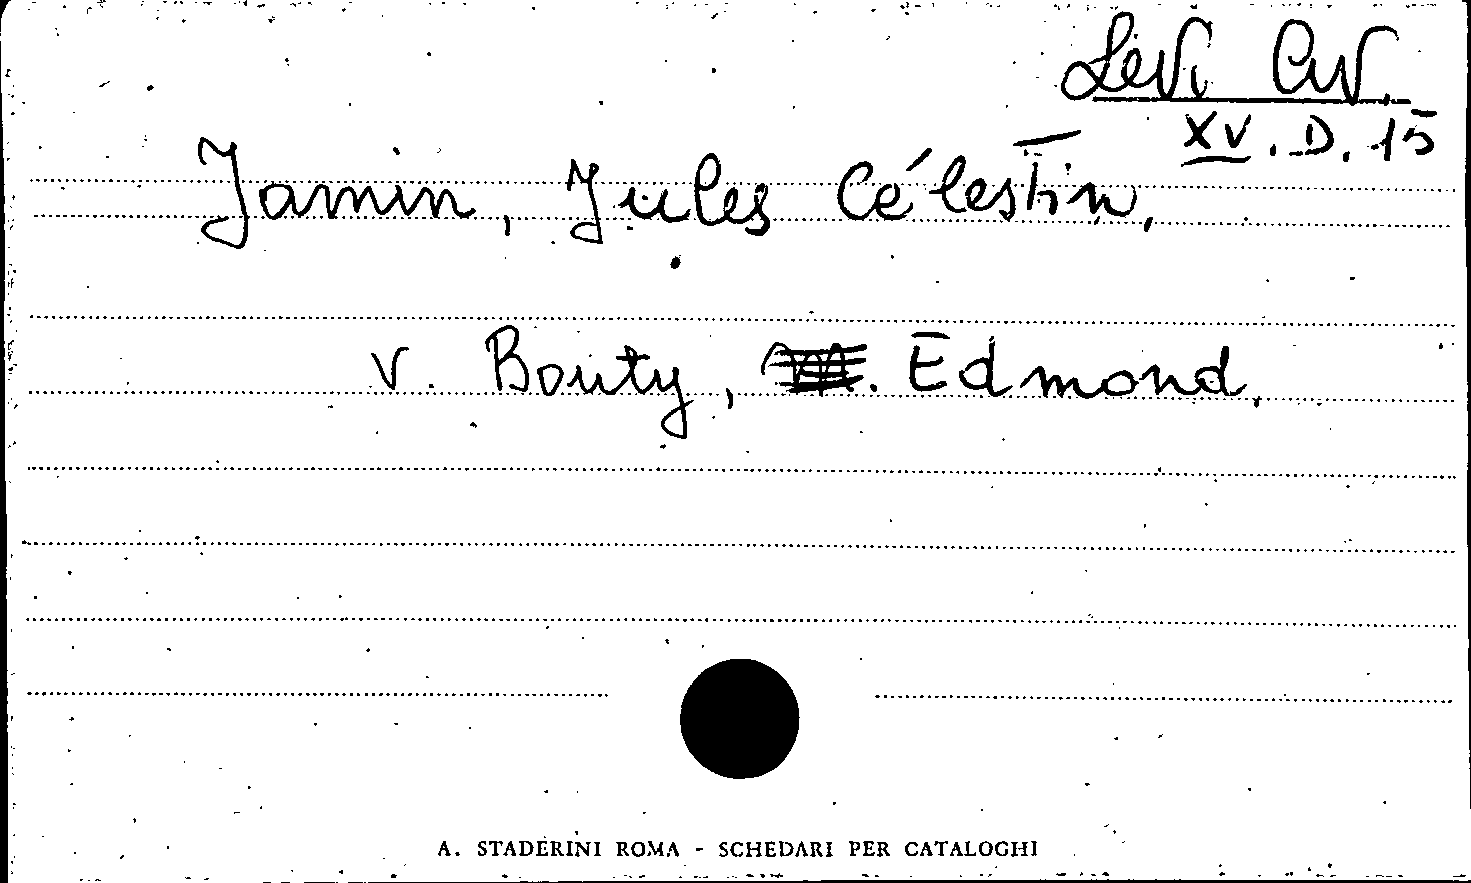 Levi Civ.
XV. D. 15
Jamin, Jules Célestin,
v. Bouty, Edmond.
A. STADERINI ROMA - SCHEDARI PER CATALOGHI